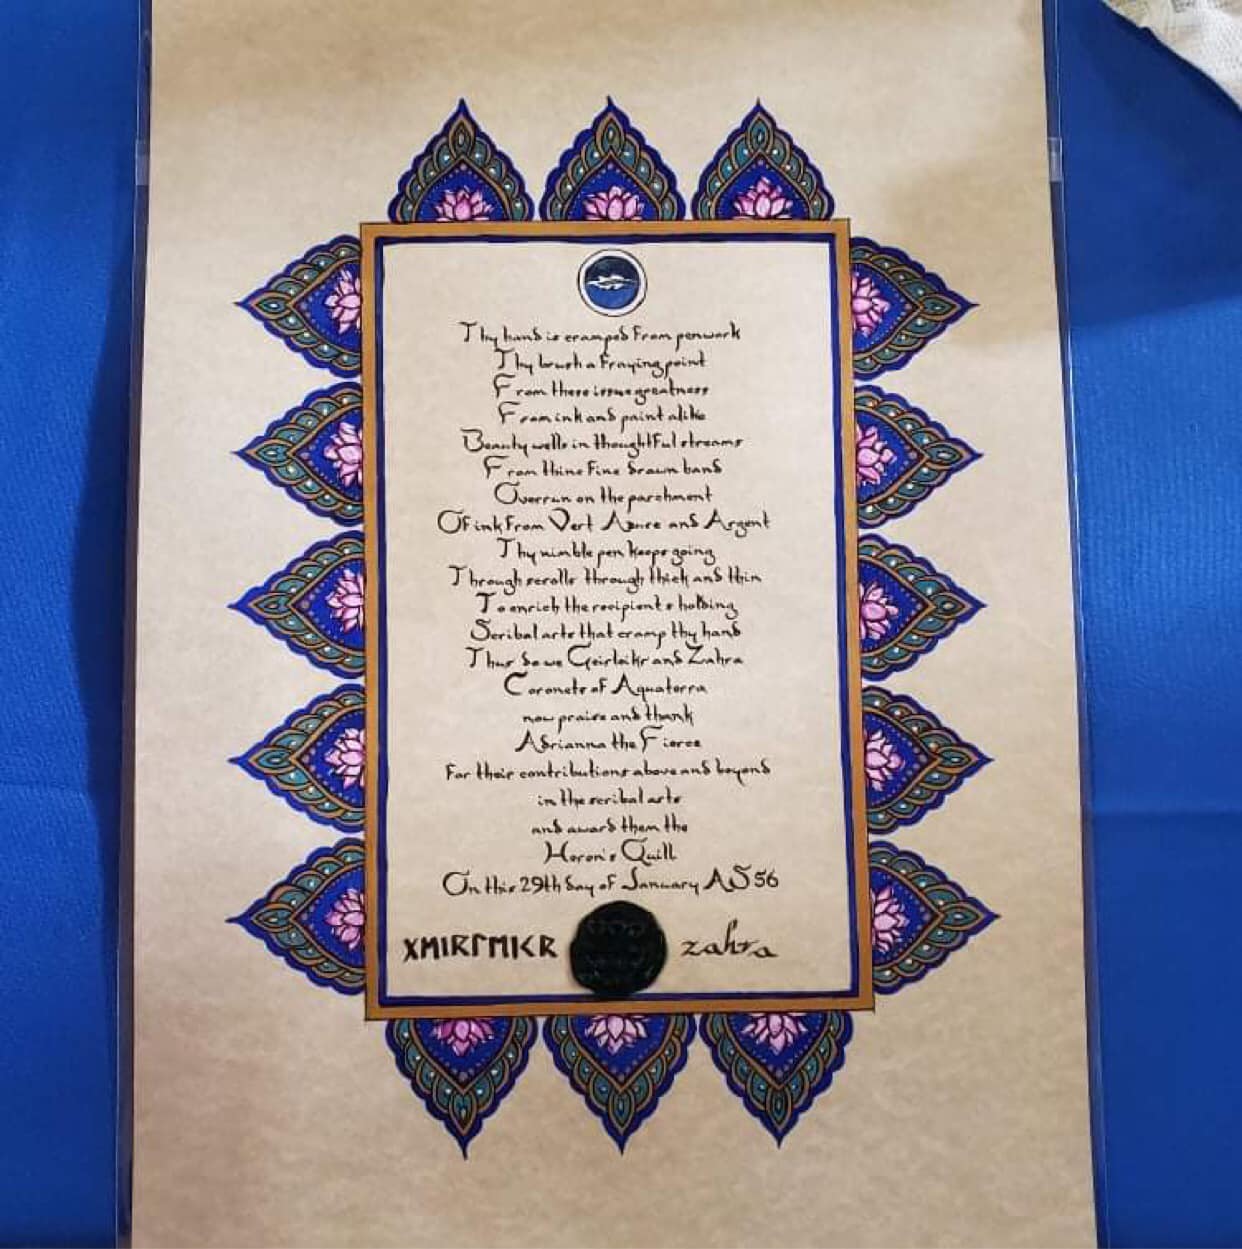 Thy hand is cramped from penwork
Thy brush a fraying point
From these issue greatness
From ink and paint alike
Beauty wells in thoughtful streams
From thine fine drawn hand
Overrun on the parchment
Of ink from Vert Azure and Argent
Thy nimble pen keeps going
Through scrolls through thick and thin
To enrich the recipients holding
Scribal arts that cramp thy hand
Thus do we Geirleikr and Zahra
Coronets of Aquaterra
now praise and thank
Adrianna the Fierce
For their contributions above and beyond
in the scribal arts
and award them the
Heron's Quill
On this 29th day of January AS 56
ᚷᛖᛁᚱᛚᛖᛁᚲᚱ zahra